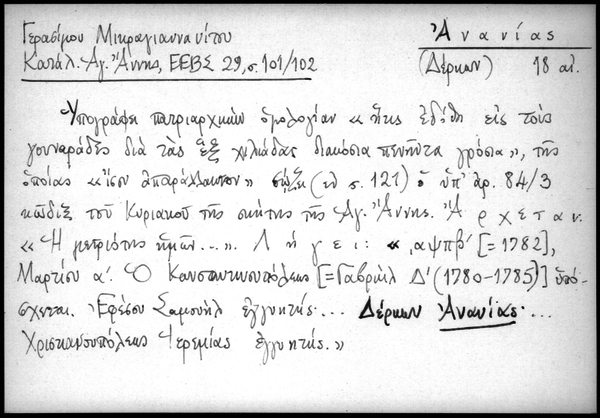 Γερασίμου Μικραγιαννανίτου
Ἀνανίας
Κατάλ. Ἁγ. Ἄννης, ΕΕΒΣ 29, σ. 101/102
(Δέρκων) 18 αἰ.
Ὑπογράφει πατριαρχικὴν ὁμολογίαν «ἥτις ἐδόθη εἰς τοὺς
γουναράδες διὰ τὰς ἓξ χιλιάδας διακόσια πενῆντα γρόσια», τῆς
ὁποίας «ἴσον ἀπαράλλακτον» σῴζει (ἐν σ. 121) ὁ ὑπ' ἀρ. 84/3
κῶδιξ τοῦ Κυριακοῦ τῆς σκήτης τῆς Ἁγ. Ἄννης. Ἄρχεται.
«Ἡ μετριότης ἡμῶν...». Λήγει: «͵αψπβʹ [= 1782],
Μαρτίου αʹ. Ὁ Κωνσταντινουπόλεως [= Γαβριὴλ Δ' (1780-1785)] ὑπό-
σχεται. Ἐφέσου Σαμουὴλ ἐγγυητής... Δέρκων Ἀνανίας...
Χριστιανουπόλεως Ἱερεμίας ἐγγυητής.»